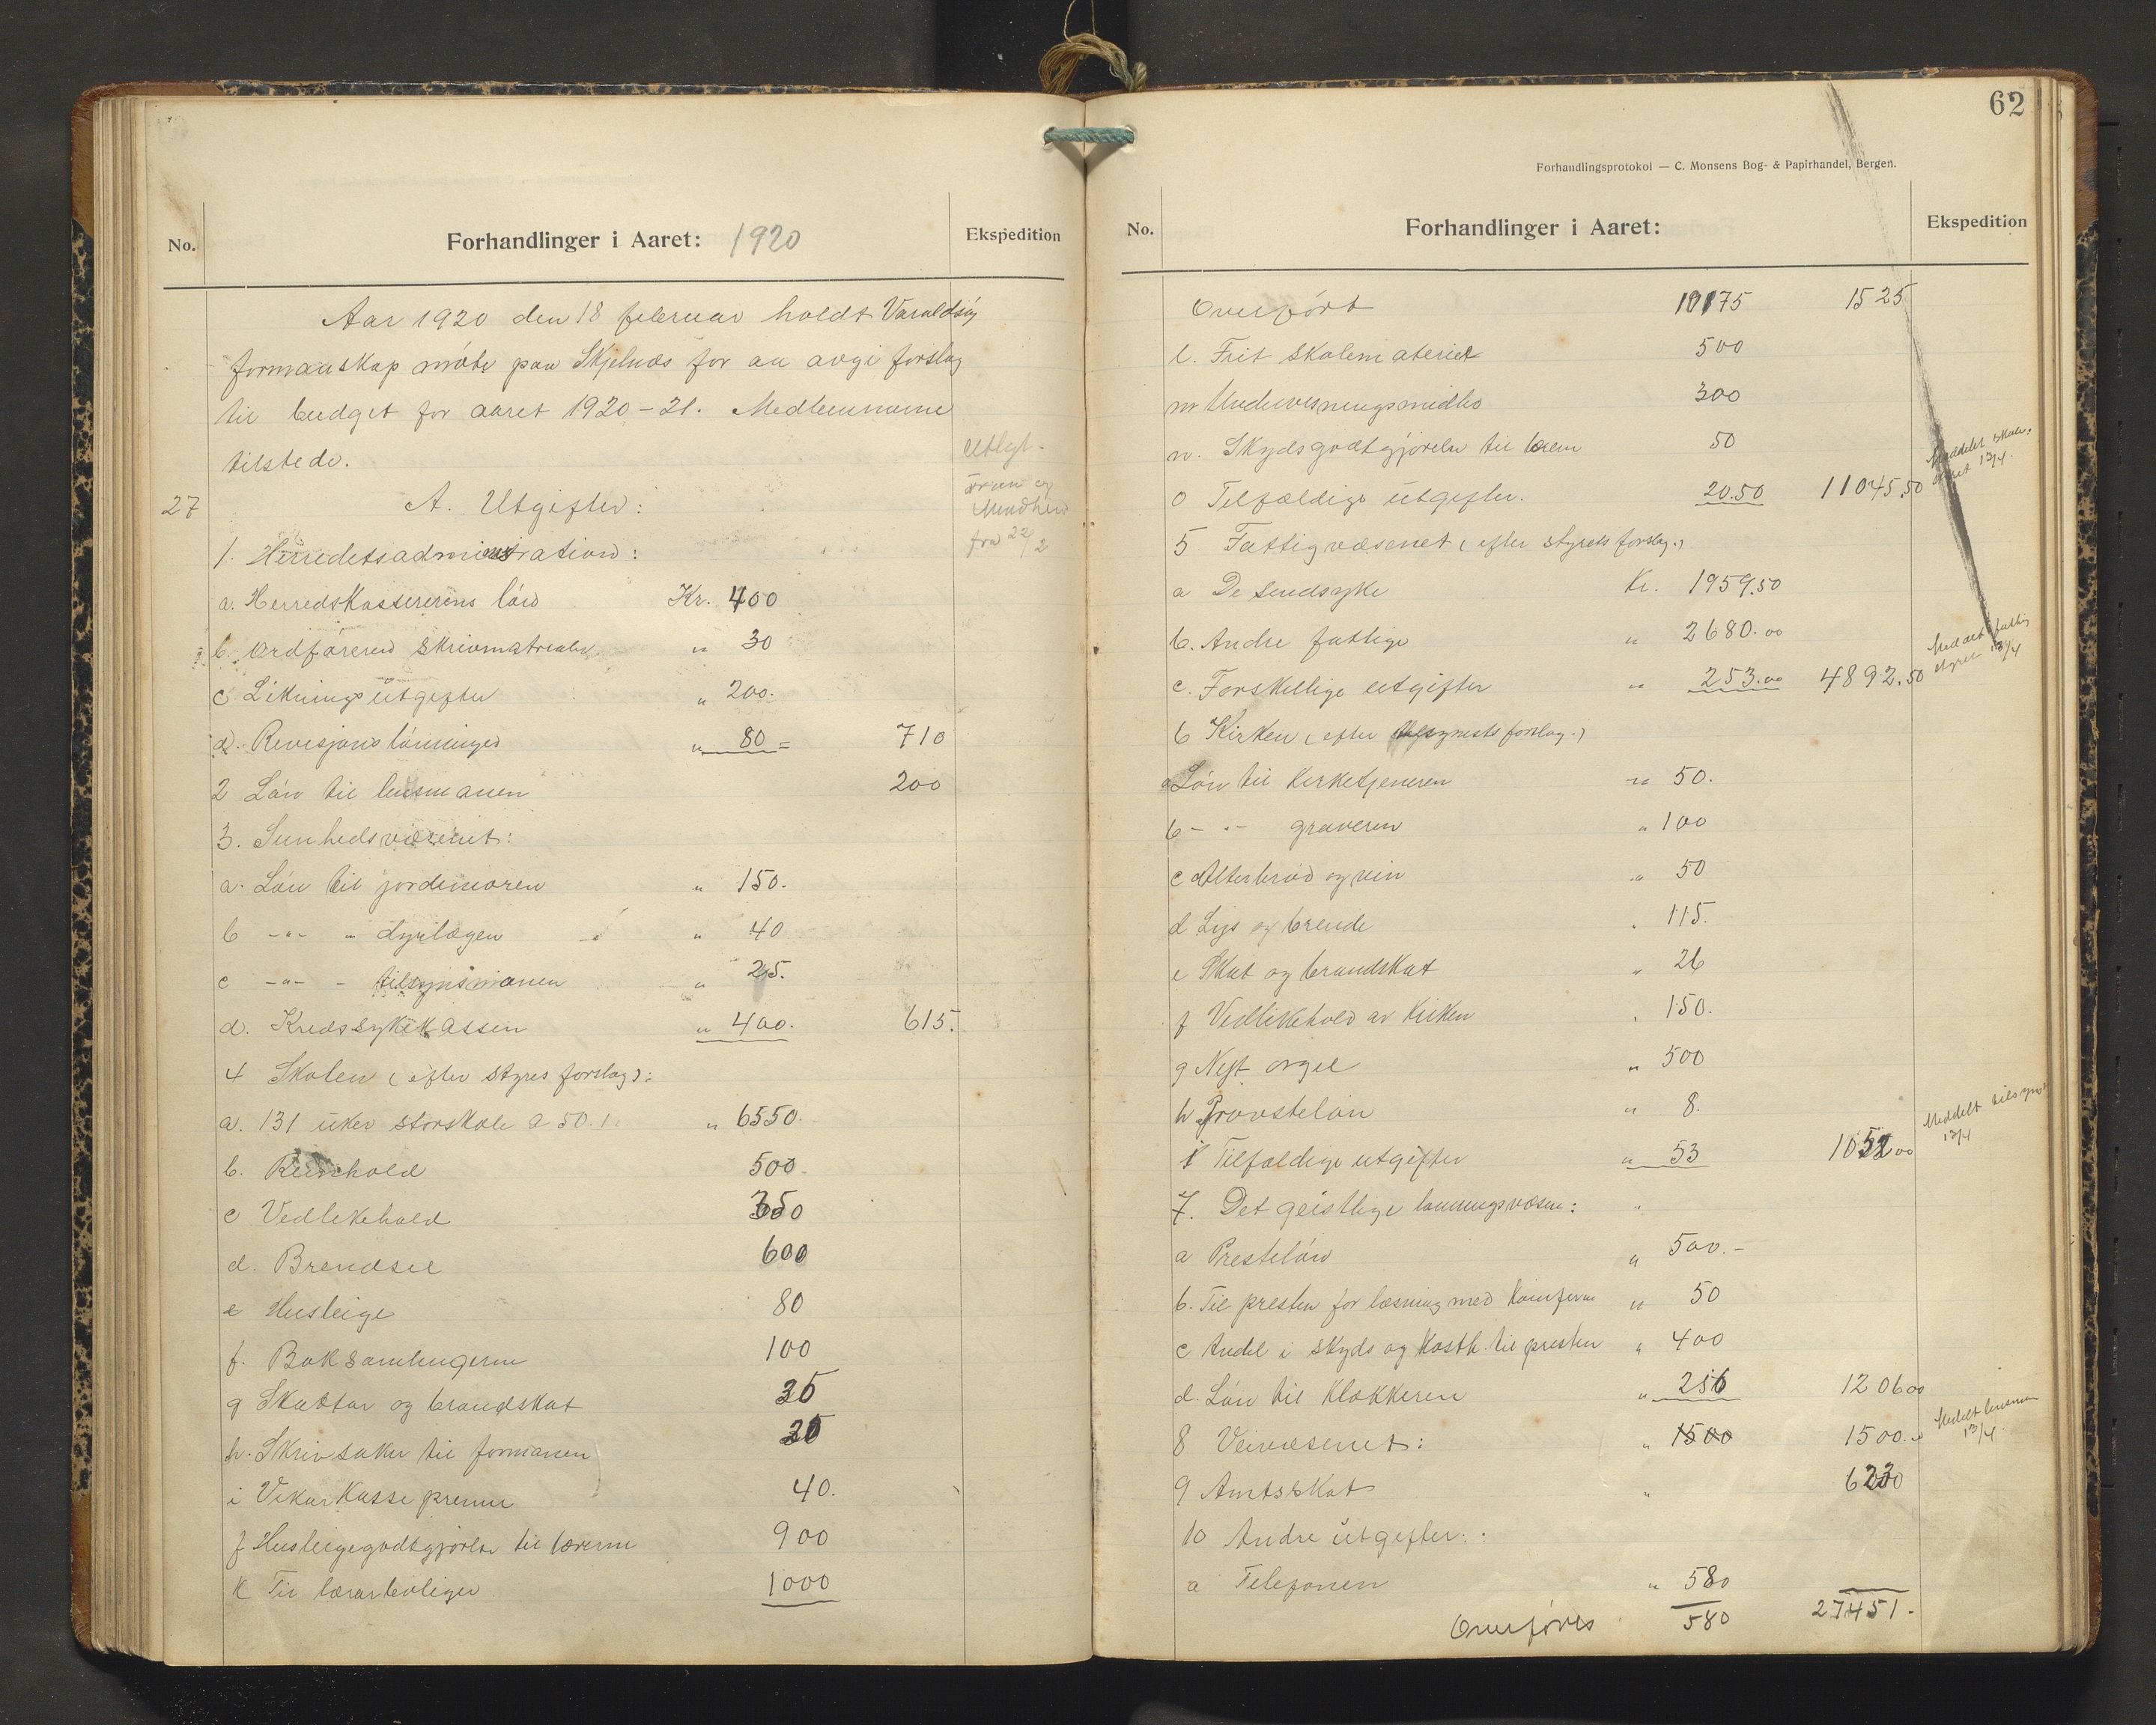 No.
Forhandlinger i Aaret: 1920
Ekspedition
Aar 1920 den 18 februar holdt Varaldsøy
formanskap møte paa Skjelnæs for aa avgi forslag
til budget for aaret 1920-21. Medlemmerne
tilstede.
27
A. Utgifter:
1. Herredsadministration:
a. Herredskassererens løn Kr. 400
b. Ordføreren skrivmatrialer " 30
c Likningsutgifter " 200.
d. Revisjons lønninger " 80 = 710
2 Løn til lensmanen 200
3. Sunhedsvæsenet:
a. Løn til jordmoren " 150.
b -"- " dyrlægen " 40
c -"- - tilsynsmanen " 25.
d. Kredssykekassen " 400. 615.
4 Skolen (efter styres forslag):
a. 131 uker storskole a 50. " 6550.
b. Reinhold 500.
c Vedlikehold 350
d. Brendsel 600
e Husleige 80
f. Boksamlingerne 100
g Skattar og brandskat 35
h. Skrivsaker til formanen 20
i Vikarkasse premie 40.
j Husleigegodtgjørelse til lærerne 900
k Til lærarboliger 1000
62
Forhandlingsprotokol — C. Monsens Bog- & Papirhandel, Bergen.
No.
Forhandlinger i Aaret:
Ekspedition
Overført 10175 1525
l. Frit skolemateriel 500
m Undervisningsmidler 300
n. Skydsgodtgjørelse til lærern 50
o Tilfældige utgifter. 20.50 11045.50
Meddelt skule-
styret 13/4.
5 Fattigvæsenet (efter styrets forslag.)
a De sindsyke Kr. 1959.50
b. Andre fattige " 2680.00
c. Forskellige utgifter " 253.00 4892.50
Meddelt fattig
styret 13/4
6 Kirken (efter tilsynets forslag.)
a Løn til kirketjeneren " 50.
b - "- graveren " 100
c Alterbrød og vin " 50
d Lys og brende " 115.
e Skat og brandskat " 26
f Vedlikehold av kirken " 150.
g Nyt orgel " 500
h Provsteløn " 8.
i Tilfældige utgifter " 53 1052.00
Meddelt tilsynet
13/4
7. Det geistlige lønningsvæsen:
a Presteløn " 500.-
b. Til presten for læsning med konferm " 50
c Andel i skyds og kosth. til presten " 400
d. Løn til klokkeren " 256 1206.00
8 Veivæsenet: " 1500 1500.
Meddelt lensman
13/4.
9 Amtsskat " 6230
10 Andre utgifter:
a Telefonen " 580
Overføres 580 27451.